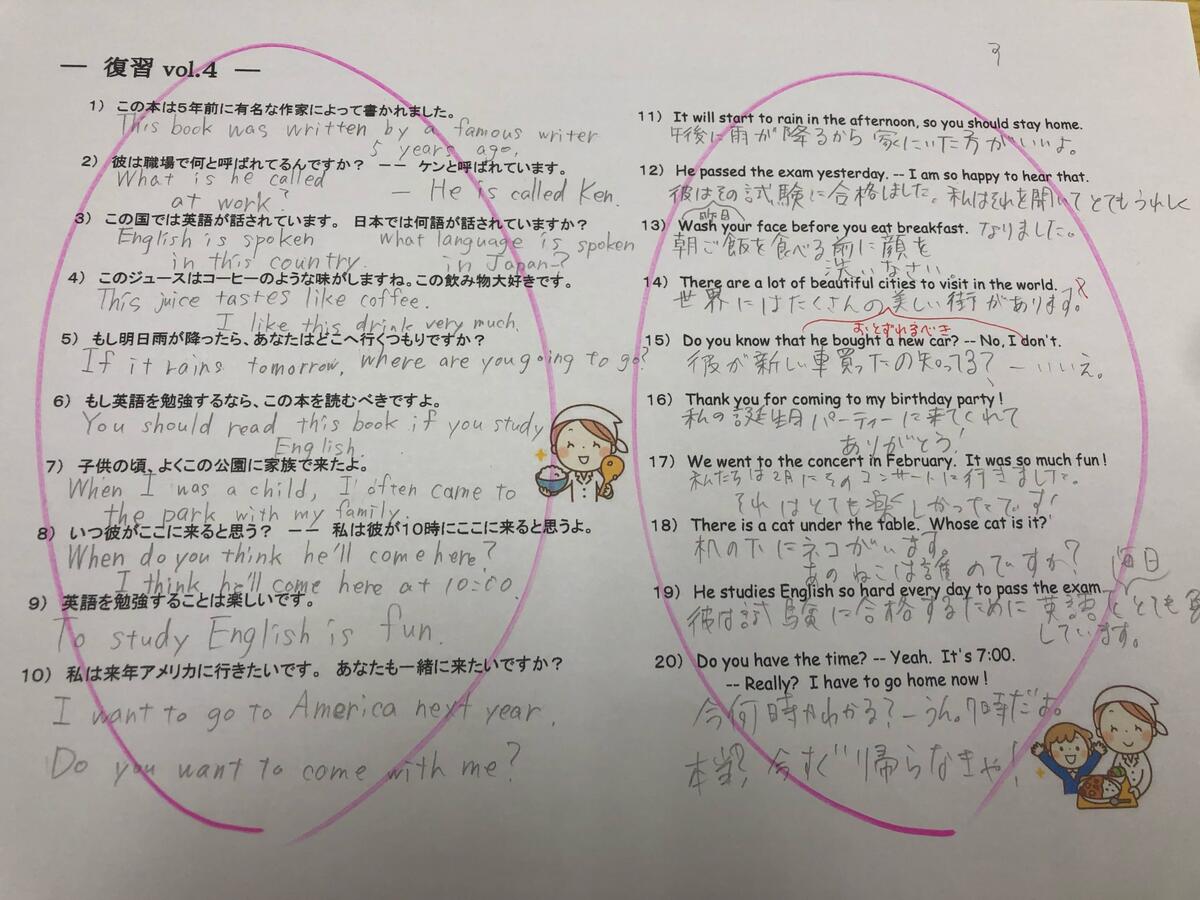 ― 復習 vol.4 ―
1) この本は5年前に有名な作家によって書かれました。
This book was written by a famous writer
5 years ago.
2) 彼は職場で何と呼ばれてるんですか? ―― ケンと呼ばれています。
What is he called
at work?
― He is called Ken.
3) この国では英語が話されています。 日本では何語が話されていますか?
English is spoken
in this country.
what language is spoken
in Japan?
4) このジュースはコーヒーのような味がしますね。この飲み物大好きです。
This juice tastes like coffee.
I like this drink very much.
5) もし明日雨が降ったら、あなたはどこへ行くつもりですか?
If it rains tomorrow, where are you going to go?
6) もし英語を勉強するなら、この本を読むべきですよ。
You should read this book if you study
English.
7) 子供の頃、よくこの公園に家族で来たよ。
When I was a child, I often came to
the park with my family.
8) いつ彼がここに来ると思う? ―― 私は彼が10時にここに来ると思うよ。
When do you think he'll come here?
I think he'll come here at 10:00.
9) 英語を勉強することは楽しいです。
To study English is fun.
10) 私は来年アメリカに行きたいです。 あなたも一緒に来たいですか?
I want to go to America next year.
Do you want to come with me?
11) It will start to rain in the afternoon, so you should stay home.
午後に雨が降るから家にいた方がいいよ。
12) He passed the exam yesterday. -- I am so happy to hear that.
彼はその試験に合格しました。私はそれを聞いてとてもうれしく
昨日
なりました。
13) Wash your face before you eat breakfast.
朝ご飯を食べる前に顔を
洗いなさい
14) There are a lot of beautiful cities to visit in the world.
世界にはたくさんの美しい街があります。
おとずれるべき
15) Do you know that he bought a new car? -- No, I don't.
彼が新しい車買ったの知ってる? ―いいえ。
16) Thank you for coming to my birthday party!
私の誕生日パーティーに来てくれて
ありがとう!
17) We went to the concert in February. It was so much fun!
私たちは2月にそのコンサートに行きました。
それはとても楽しかったです!
18) There is a cat under the table. Whose cat is it?
机の下にネコがいます。
あのねこは誰のですか?
毎日
19) He studies English so hard every day to pass the exam.
彼は試験に合格するために英語をとても
しています。
20) Do you have the time? -- Yeah. It's 7:00.
-- Really? I have to go home now!
今何時かわかる?―うん。7時だよ。
本当?今すぐ帰らなきゃ!